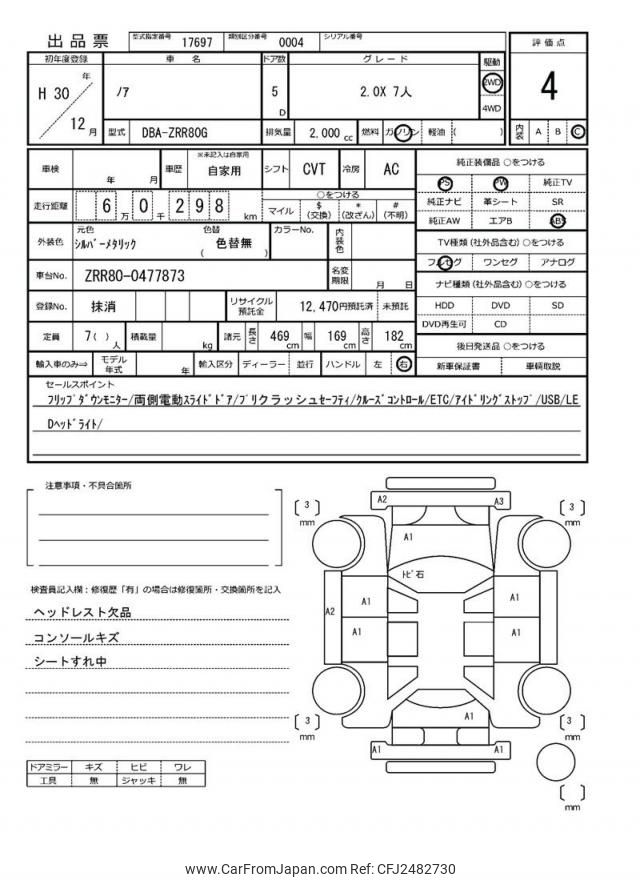 出品票 型式指定番号 17697 類別区分番号 0004 シリアル番号
初年度登録 車名 ドア数 グレード 駆動 評価点
H 30 年 12 月 ノア 5 D 2.0X 7人 2WD 4WD 4
型式 DBA-ZRR80G 排気量 2,000 cc 燃料 ガソリン 軽油 ( ) 内装 A B C
車検 年 月 車歴 ※未記入は自家用 自家用 シフト CVT 冷房 AC
純正装備品 ○をつける
PS PW 純正TV
走行距離 6 万 0 千 2 9 8 km ○をつける
マイル $ (交換) * (改ざん) # (不明)
純正ナビ 革シート SR
純正AW エアB ABS
外装色 元色 シルバーメタリック 色替 ( 色替無 ) カラーNo. 内装色
TV種類 (社外品含む) ○をつける
フルセグ ワンセグ アナログ
車台No. ZRR80-0477873 名変期限 月 日
ナビ種類 (社外品含む) ○をつける
HDD DVD SD
DVD再生可 CD
登録No. 抹消 リサイクル預託金 12,470円預託済 未預託
定員 7( )人 積載量 kg 諸元 長さ 469 cm 幅 169 cm 高さ 182 cm
後日発送品 ○をつける
新車保証書 車輌取説
輸入車のみ⇒ モデル年式 年 輸入区分 ディーラー 並行 ハンドル 左 右
セールスポイント
フリップダウンモニター/両側電動スライドドア/プリクラッシュセーフティ/クルーズコントロール/ETC/アイドリングストップ/USB/LE
Dヘッドライト/
注意事項・不具合箇所
検査員記入欄：修復歴「有」の場合は修復箇所・交換箇所を記入
ヘッドレスト欠品
コンソールキズ
シートすれ中
ドアミラー キズ ヒビ ワレ
工具 無 ジャッキ 無
[ 3 ] mm A2 A3 [ 3 ] mm
A1
トビ石
A2 A1 A1
A1 A1
[ 3 ] mm A1 [ 3 ] mm
A1 A1
[ ] mm
www.CarFromJapan.com Ref: CFJ2482730